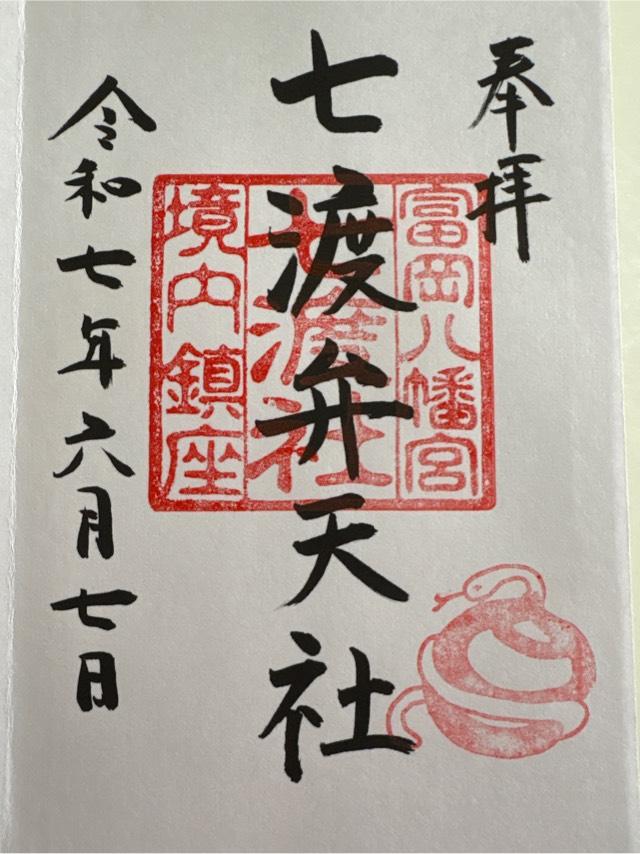 奉拝
七渡弁天社
富岡八幡宮
七渡社
境内鎮座
令和七年六月七日